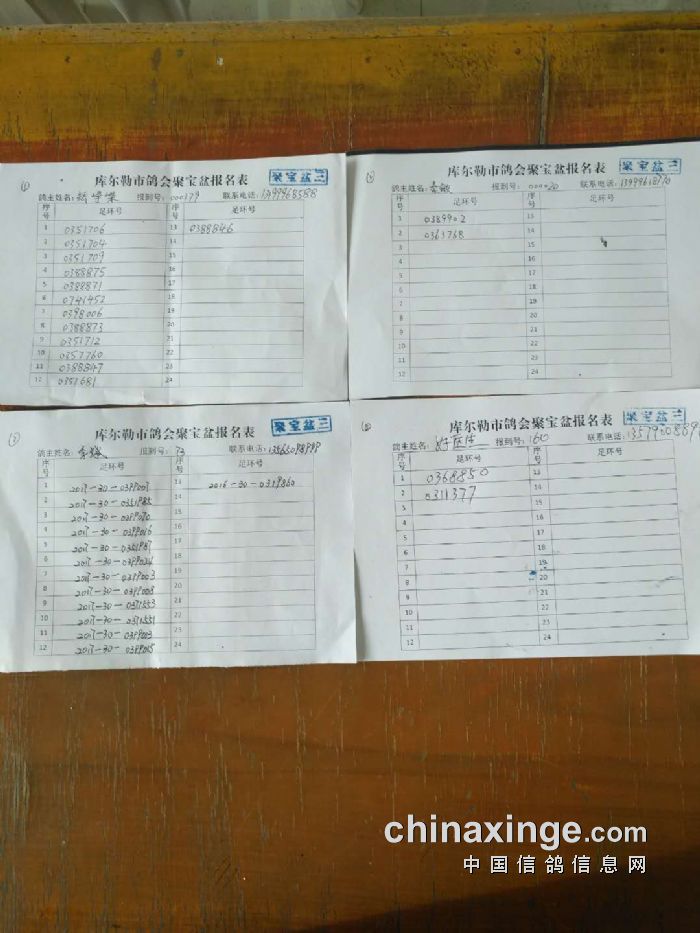 ①
库尔勒市鸽会聚宝盆报名表
聚宝盆三
鸽主姓名: 报到号: 000179 联系电话: 13999685588
序号 足环号 序号 足环号
1 0351706 13 0388846
2 0351704 14
3 0351709 15
4 0388875 16
5 0388871 17
6 0741452 18
7 0398006 19
8 0388873 20
9 0351712 21
10 0357760 22
11 0388847 23
12 0351681 24
库尔勒市鸽会聚宝盆报名表
聚宝盆三
鸽主姓名: 报到号: 联系电话:
序号 足环号 序号 足环号
1 0389902 13
2 0363768 14
3 15
4 16
5 17
6 18
7 19
8 20
9 21
10 22
11 23
12 24
③
库尔勒市鸽会聚宝盆报名表
聚宝盆三
鸽主姓名: 报到号: 73 联系电话:
序号 足环号 序号 足环号
1 2017-30-0399007 13 2016-30-0319860
2 2017-30-0351985 14
3 15
4 2017-30-0399016 16
5 17
6 18
7 2017-30-0399003 19
8 2017-30-0399003 20
9 2017-30-0371553 21
10 2017-30-0371551 22
11 2017-30-0399003 23
12 2017-30-0399015 24
库尔勒市鸽会聚宝盆报名表
聚宝盆三
鸽主姓名: 报到号: 160 联系电话:
序号 足环号 序号 足环号
1 0368850 13
2 0311377 14
3 15
4 16
5 17
6 18
7 19
8 20
9 21
10 22
11 23
12 24
chinaxinge.com
中国信鸽信息网